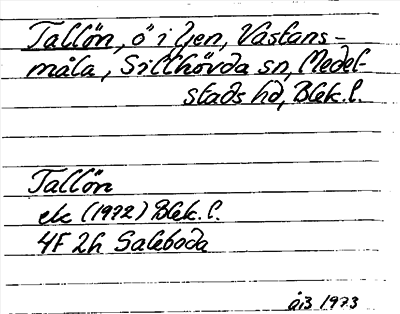 Tallön, ö i Ljen, Västans-
måla, Sillhövda sn, Medel-
stads hd, Blek. l.
Tallön
ek (1972) Blek. l.
4F 2h Saleboda
åB 1973